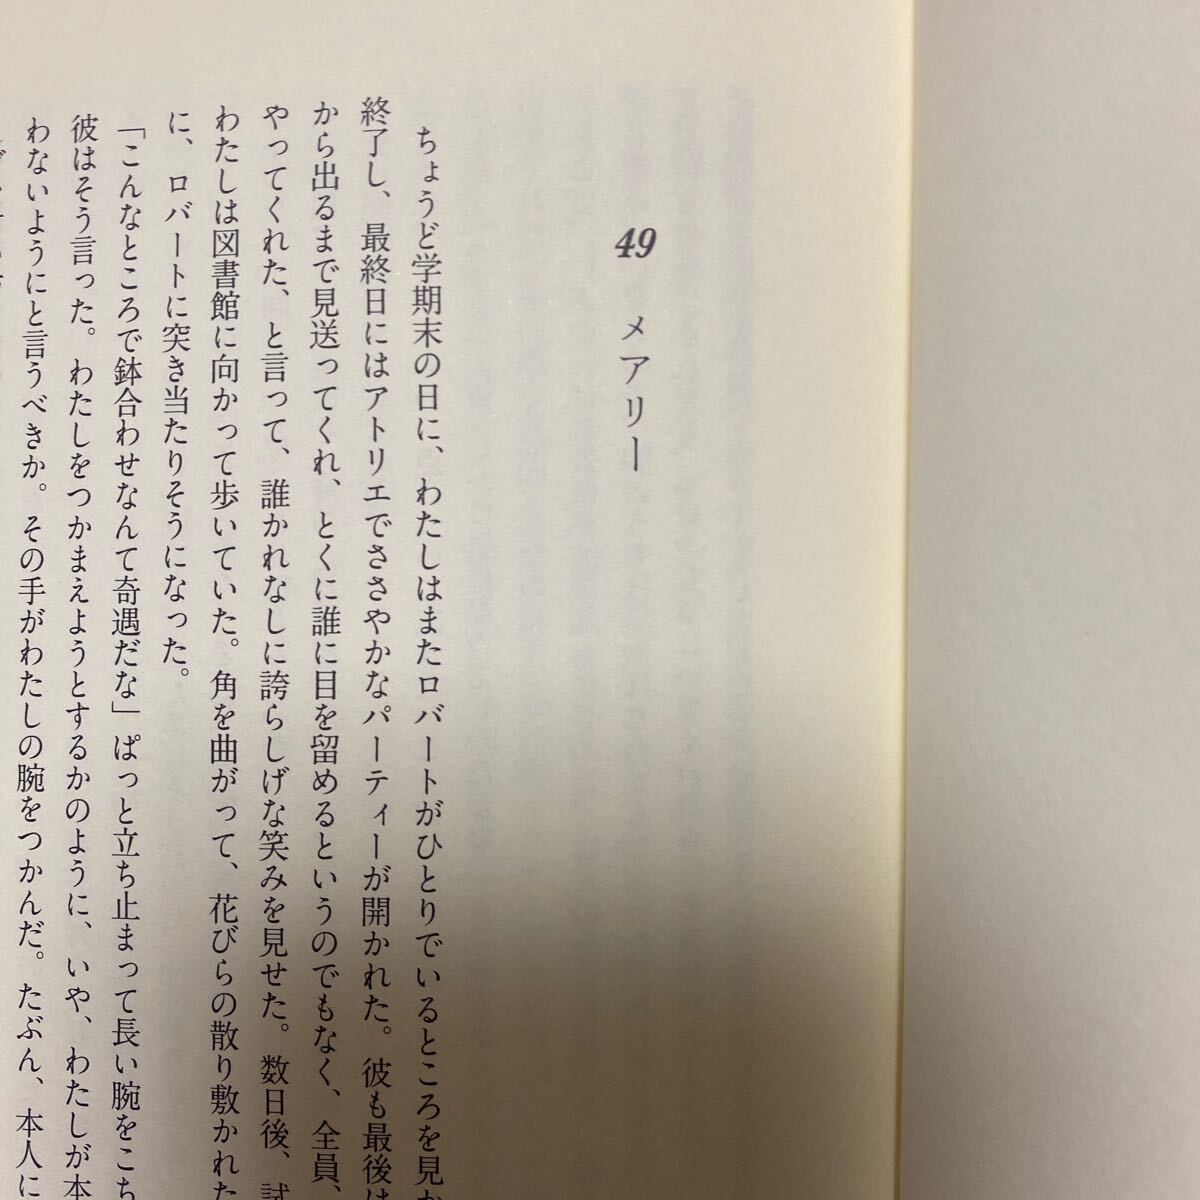 49 メアリー
ちょうど学期末の日に、わたしはまたロバートがひとりでいるところを見か
終了し、最終日にはアトリエでささやかなパーティーが開かれた。彼も最後は
から出るまで見送ってくれ、とくに誰に目を留めるというのでもなく、全員、
やってくれた、と言って、誰かれなしに誇らしげな笑みを見せた。数日後、試
わたしは図書館に向かって歩いていた。角を曲がって、花びらの散り敷かれた
に、ロバートに突き当たりそうになった。
「こんなところで鉢合わせなんて奇遇だな」ぱっと立ち止まって長い腕をこち
彼はそう言った。わたしをつかまえようとするかのように、いや、わたしが本
わないようにと言うべきか。その手がわたしの腕をつかんだ。たぶん、本人に